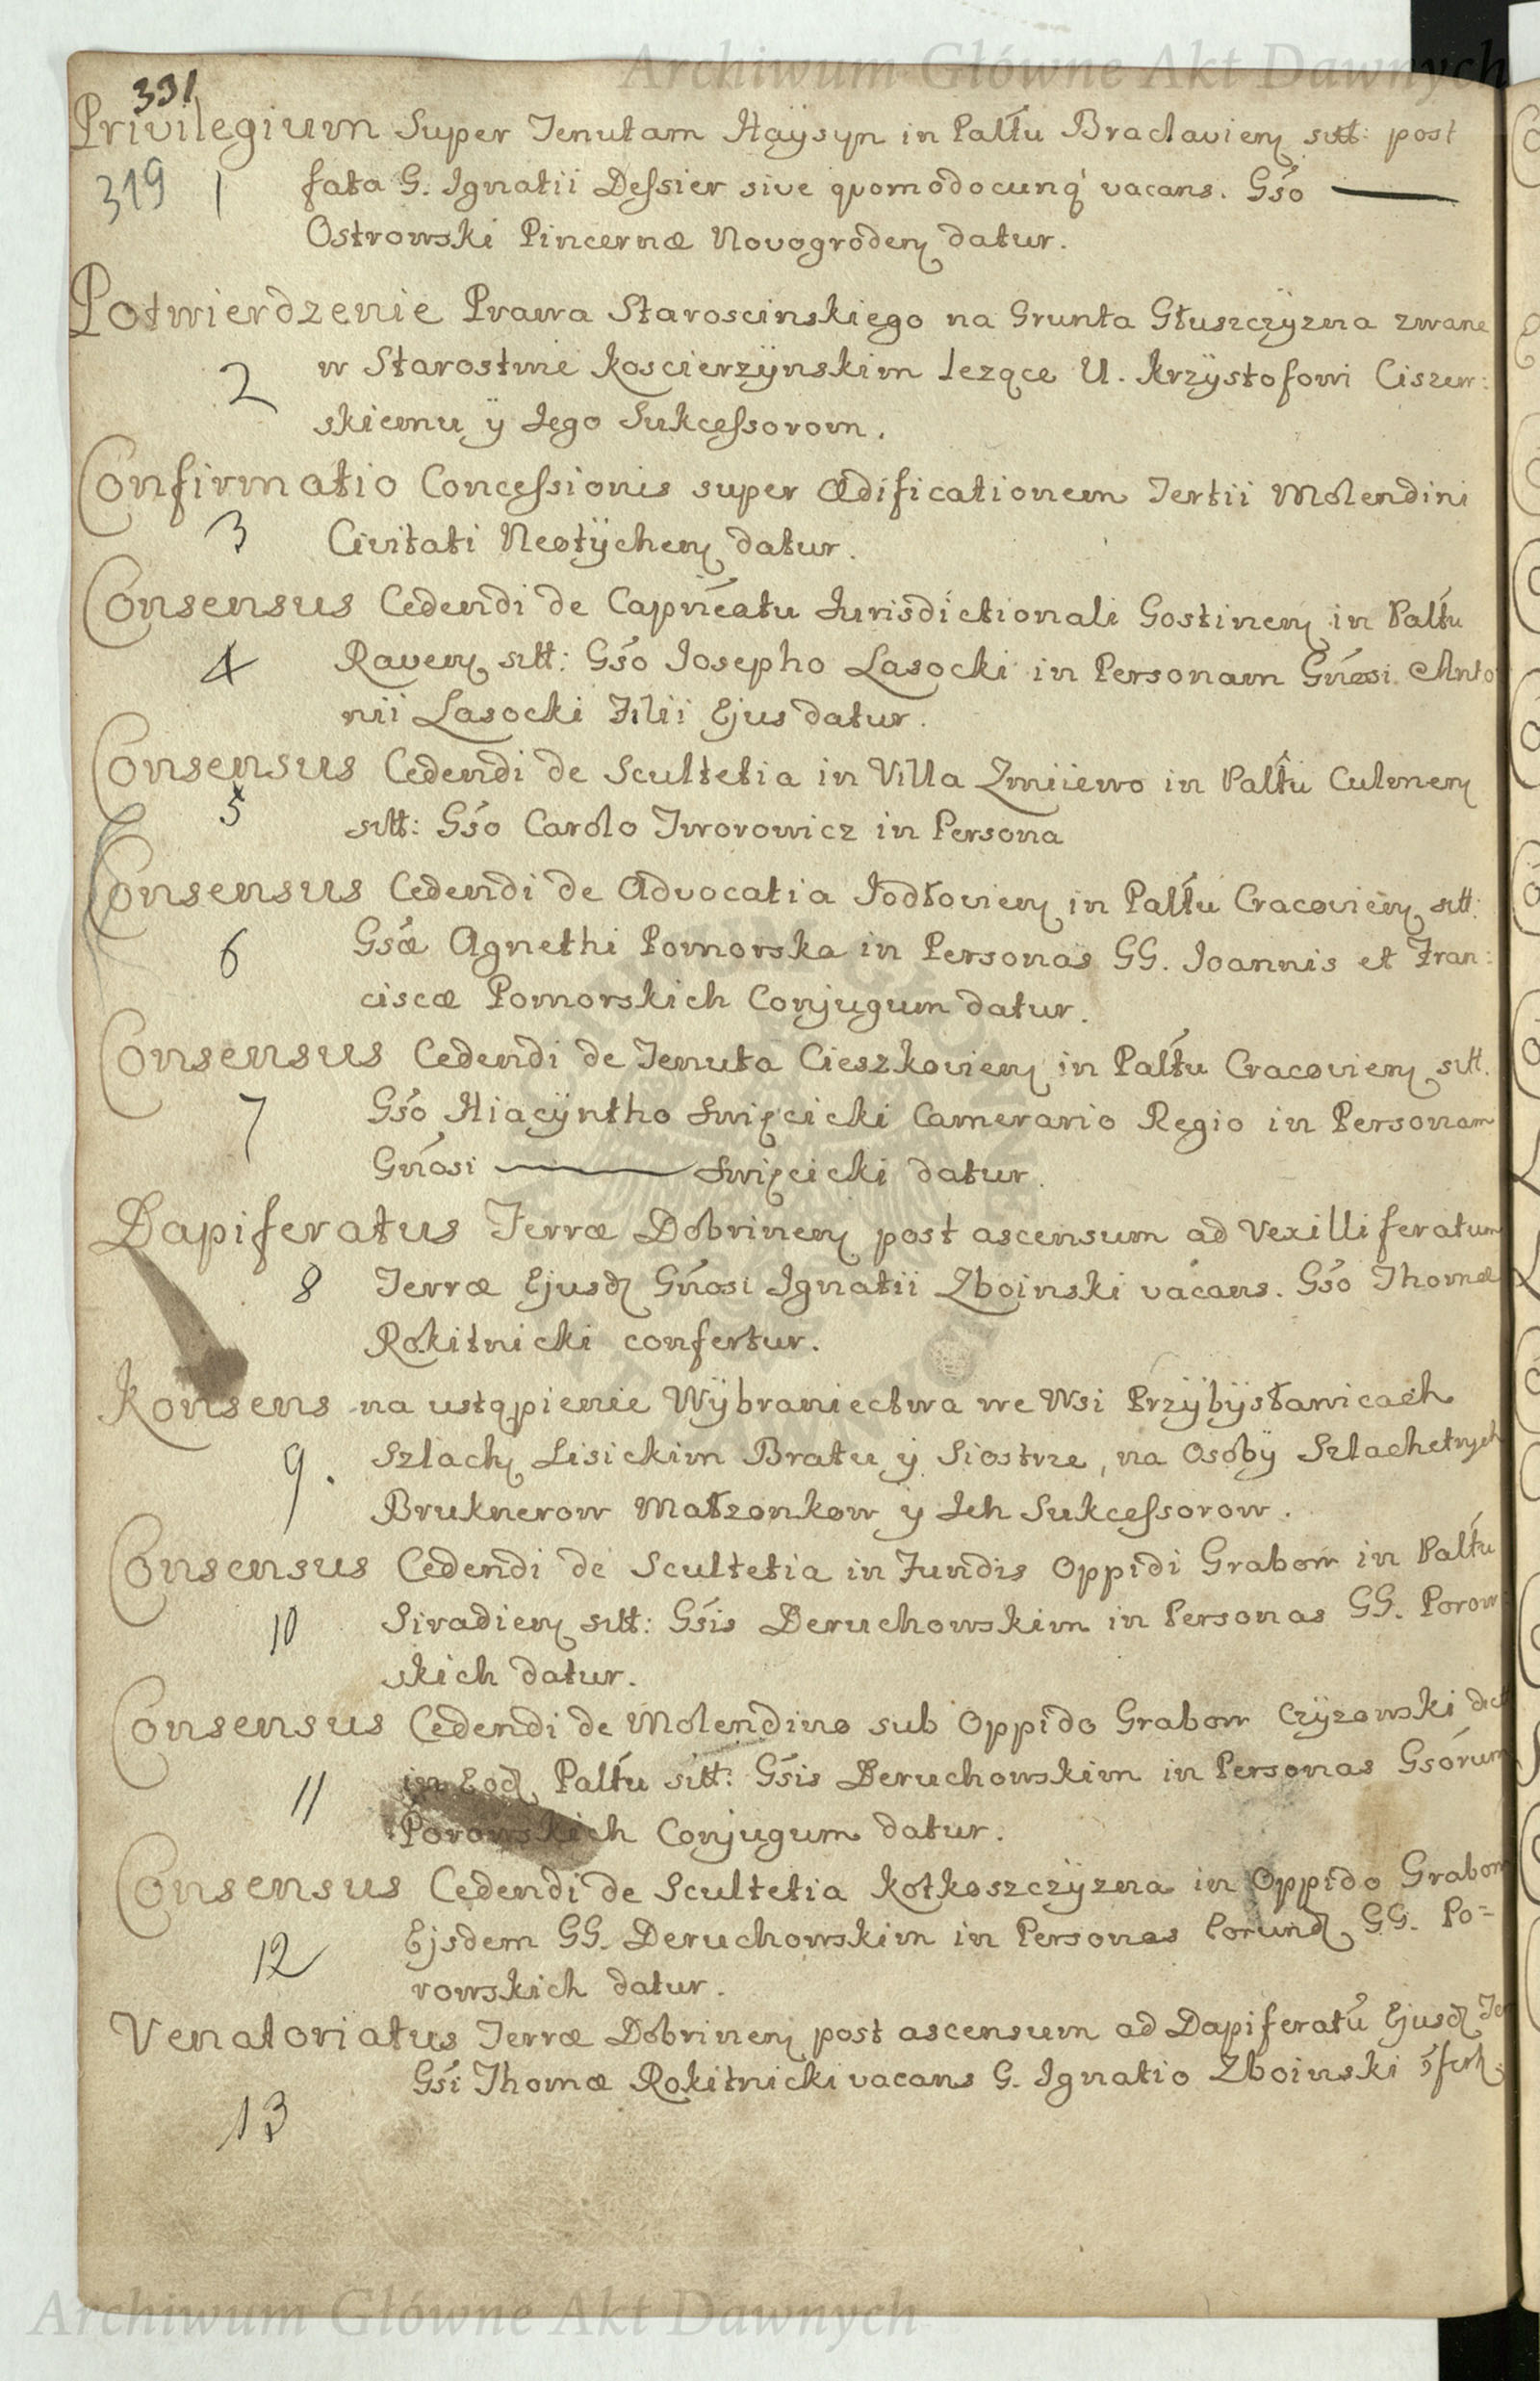 Archiwum Główne Akt Dawnych
331
Privilegium super Tenutam Haÿsyn in Paltũ Braclavien sitt: post
319 1 fata G. Ignatii Dessier sive qvomodocunq vacans. Gso ———
Ostrowski Pincernæ Novogroden datur.
Potwierdzenie Prawa Staroscinskiego na Grunta Głuszczÿzna zwane
2 w Starostwie Koscierzÿnskim lezące U. Krzÿstofowi Ciszew:
skiemu ÿ Jego Sukcessorom.
Confirmatio Concessionis super Ædificationem Tertii Molendini
3 Civitati Neotÿchen datur.
Consensus Cedendi de Capn̄eatu Jurisdictionali Gostinen in Paltũ
4 Raven sitt: Gso Josepho Lasocki in Personam Gn̄osi Anto
nii Lasocki Filii Ejus datur.
Consensus Cedendi de Scultetia in Villa Zmiiewo in Paltũ Culmen
5 sitt: Gso Carolo Tworowicz in Persona
Consensus Cedendi de Advocatia Jodłovien in Paltũ Cracovien sitt:
6 Gsæ Agnethi Pomorska in Personas GG. Joannis et Fran:
ciscæ Pomorskich Conjugum datur.
Consensus Cedendi de Tenuta Cieszkovien in Paltũ Cracovien sitt.
7 Gso Hiacÿntho Swięcicki Camerario Regio in Personam
Gn̄osi ——— Swięcicki datur.
Dapiferatus Terræ Dobrinen post ascensum ad Vexilliferatum
8 Terræ Ejusd Gn̄osi Ignatii Zboinski vacans. Gso Thomæ
Rokitnicki confertur.
Konsens na ustąpienie Wÿbraniectwa we Wsi Przÿbÿsławicach
9. Szlach Lisickim Bratu ÿ Siostrze, na Osobÿ Szlachetnych
Bruknerow Małzonkow ÿ Ich Sukcessorow.
Consensus Cedendi de Scultetia in Fundis Oppidi Grabow in Paltũ
10 Siradien sitt: Gsis Deruchowskim in Personas GG. Porow
skich datur.
Consensus Cedendi de Molendino sub Oppido Grabow Czÿzowski dict
11 in Eod Paltũ sitt: Gsis Deruchowskim in Personas Gsorum
Porowskich Conjugum datur.
Consensus Cedendi de Scultetia Kotkoszczÿzna in Oppido Grabow
12 Ejsdem GG. Deruchowskim in Personas Eorund GG. Po=
rowskich datur.
Venatoriatus Terræ Dobrinen post ascensum ad Dapiferatũ Ejusd Ter
Gsi Thomæ Rokitnicki vacans G. Ignatio Zboinski
13
Archiwum Główne Akt Dawnych